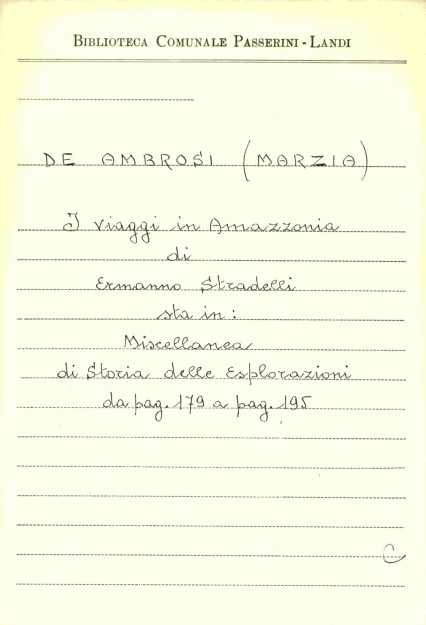 BIBLIOTECA COMUNALE PASSERINI - LANDI
DE AMBROSI (MARZIA)
I viaggi in Amazzonia
di
Ermanno Stradelli
sta in:
Miscellanea
di Storia delle Esplorazioni
da pag. 179 a pag. 195
C